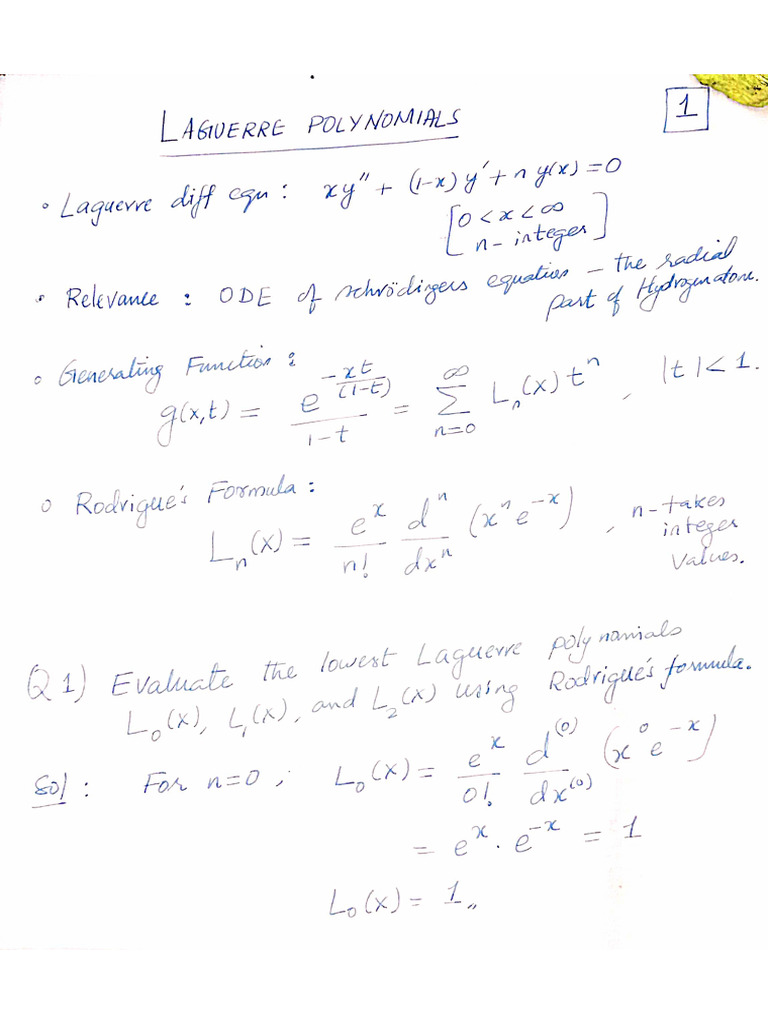 LAGUERRE POLYNOMIALS
1
• Laguerre diff eqn : xy'' + (1-x) y' + n y(x) = 0
[0 < x < ∞
n - integer]
• Relevance : ODE of schrödingers equation – the radial
part of Hydrogen atom.
o Generating Function :
g(x,t) = e^{-xt/(1-t)} / (1-t) = Σ_{n=0}^{∞} L_n(x) t^n , |t| < 1.
o Rodrigue's Formula :
L_n(x) = e^x/n! d^n/dx^n (x^n e^{-x}) , n-takes
integer
values.
Q 1) Evaluate the lowest Laguerre polynomials
L_0(x), L_1(x), and L_2(x) using Rodrigue's formula.
Sol : For n=0 ; L_0(x) = e^x/0! d^{(0)}/dx^{(0)} (x^0 e^{-x})
= e^x . e^{-x} = 1
L_0(x) = 1 〃